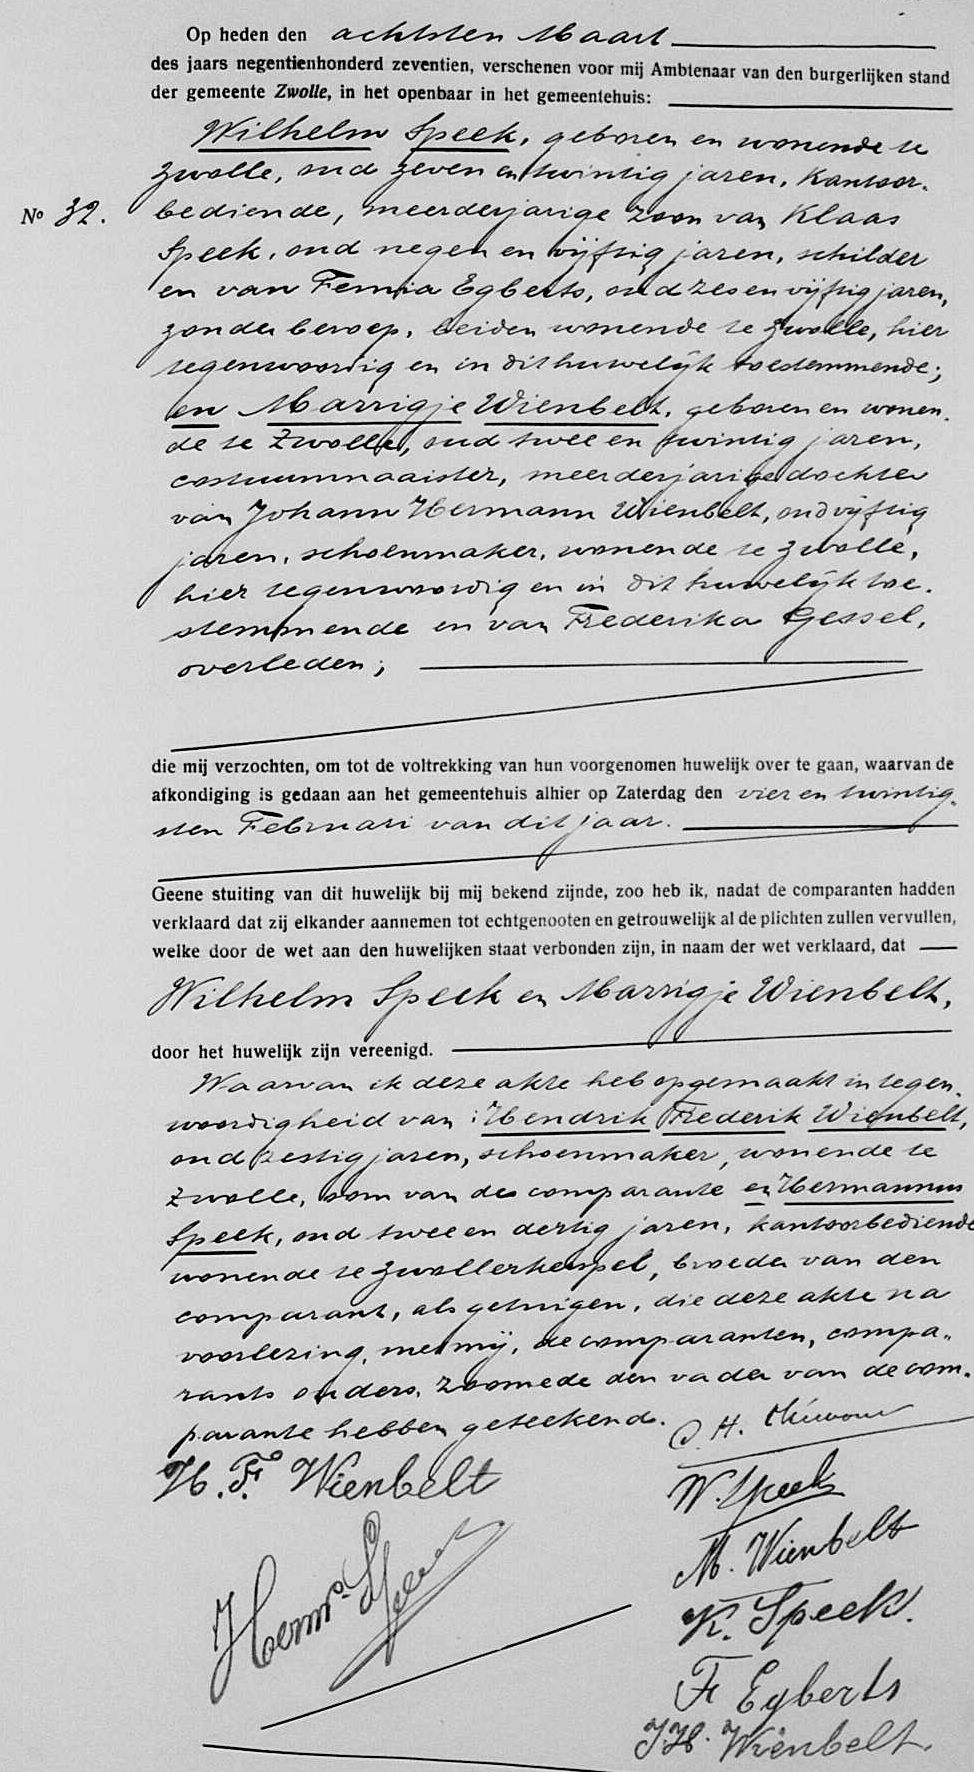 Op heden den achtsten Maart
des jaars negentienhonderd zeventien, verschenen voor mij Ambtenaar van den burgerlijken stand
der gemeente Zwolle, in het openbaar in het gemeentehuis:
Wilhelm Speek, geboren en wonende te
Zwolle, oud zeven en twintig jaren, Kantoor-
No 32. bediende, meerderjarige zoon van Klaas
Speek, oud negen en vijftig jaren, schilder
en van Femia Egberts, oud zes en vijftig jaren,
zonder beroep, beiden wonende te Zwolle, hier
tegenwoordig en in dit huwelijk toestemmende;
en Marrigje Wienbelt, geboren en wonen-
de te Zwolle, oud twee en twintig jaren,
costuumnaaister, meerderjarige dochter
van Johann Hermann Wienbelt, oud vijftig
jaren, schoenmaker, wonende te Zwolle,
hier tegenwoordig en in dit huwelijk toe-
stemmende en van Frederika Gessel,
overleden;
die mij verzochten, om tot de voltrekking van hun voorgenomen huwelijk over te gaan, waarvan de
afkondiging is gedaan aan het gemeentehuis alhier op Zaterdag den vier en twintig-
sten Februari van dit jaar.
Geene stuiting van dit huwelijk bij mij bekend zijnde, zoo heb ik, nadat de comparanten hadden
verklaard dat zij elkander aannemen tot echtgenooten en getrouwelijk al de plichten zullen vervullen,
welke door de wet aan den huwelijken staat verbonden zijn, in naam der wet verklaard, dat
Wilhelm Speek en Marrigje Wienbelt,
door het huwelijk zijn vereenigd.
Waarvan ik deze akte heb opgemaakt in tegen-
woordigheid van: Hendrik Frederik Wienbelt,
oud zestig jaren, schoenmaker, wonende te
Zwolle, oom van de comparante en Hermannus
Speek, oud twee en dertig jaren, kantoorbediende
wonende te Zwollerkerspel, broeder van den
comparant, als getuigen, die deze akte na
voorlezing, met mij, de comparanten, compa-
rants ouders, zoomede den vader van de com-
parante hebben geteekend.
H. F. Wienbelt
W. Speek
M. Wienbelt
Herms. Speek
K. Speek.
F Egberts
J.H. Wienbelt.